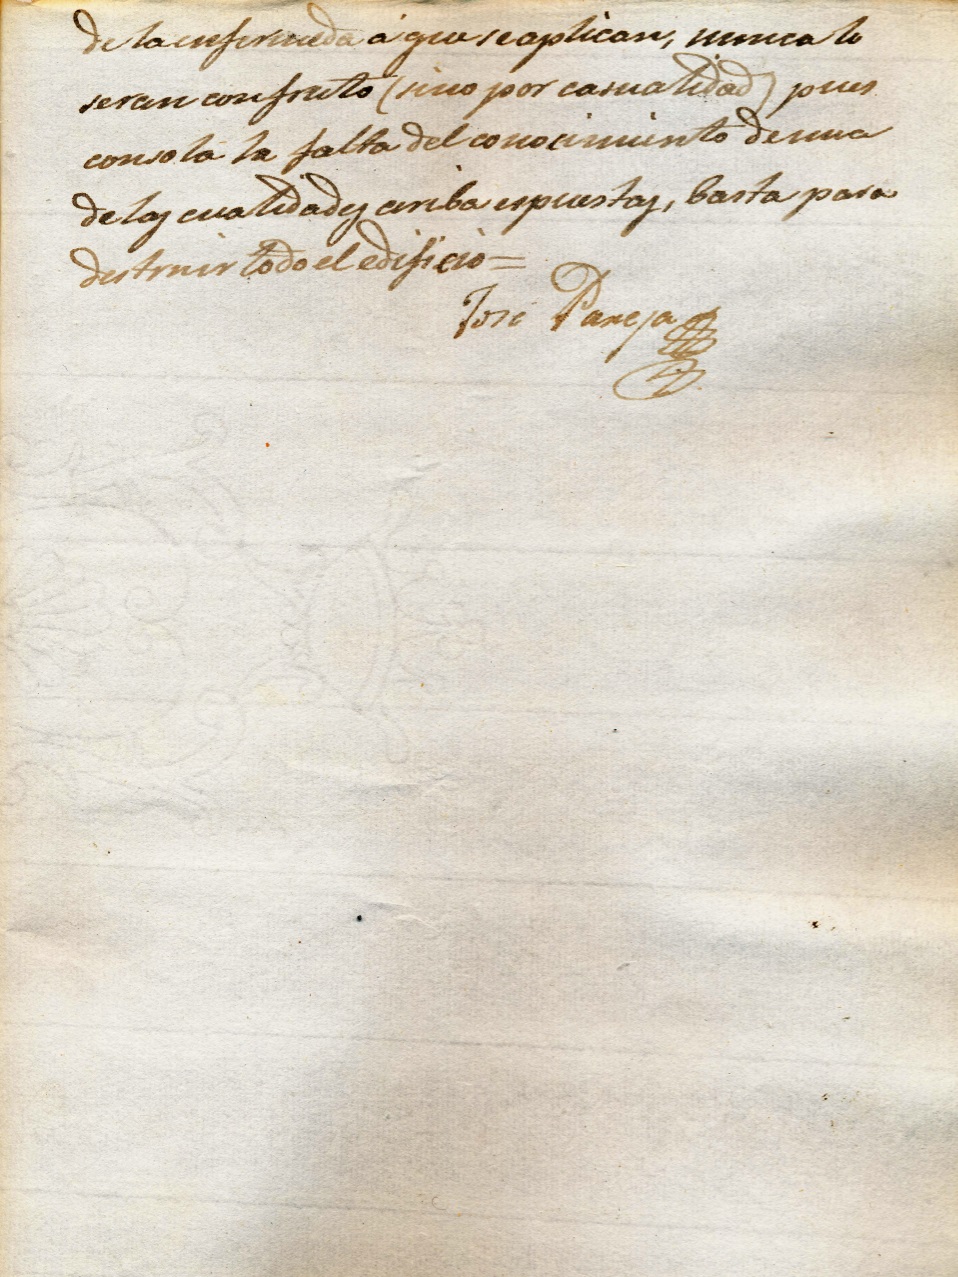 de la enfermeda á que se aplican, nunca lo
seran con fruto (sino por casualidad) pues
con sola la falta del conocimiento de una
de las cualidades arriba espuestas, basta para
destruir todo el edificio =
José Pareja